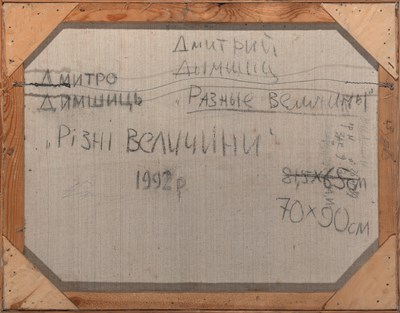 Дмитрий
Дымшиц
Дмитро
Димшиць
"Разные величины"
"Різні величини"
1992 р
81,5 x 65 см
70 x 90 см